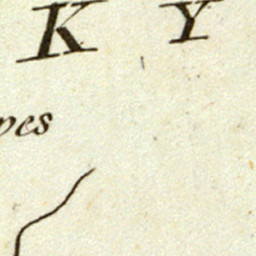 K Y
pes